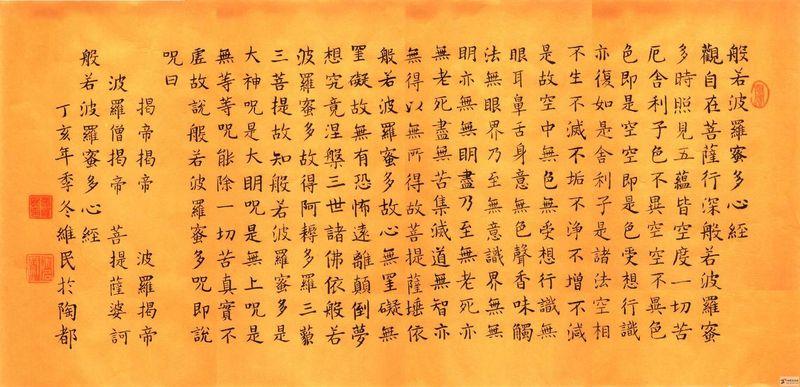 般若波羅蜜多心經
觀自在菩薩行深般若波羅蜜
多時照見五蘊皆空度一切苦
厄舍利子色不異空空不異色
色即是空空即是色受想行識
亦復如是舍利子是諸法空相
不生不滅不垢不淨不增不減
是故空中無色無受想行識無
眼耳鼻舌身意無色聲香味觸
法無眼界乃至無意識界無無
明亦無無明盡乃至無老死亦
無老死盡無苦集滅道無智亦
無得以無所得故菩提薩埵依
般若波羅蜜多故心無罣礙無
罣礙故無有恐怖遠離顛倒夢
想究竟涅槃三世諸佛依般若
波羅蜜多故得阿耨多羅三藐
三菩提故知般若波羅蜜多是
大神咒是大明咒是無上咒是
無等等咒能除一切苦真實不
虛故說般若波羅蜜多咒即說
咒曰
揭帝揭帝 波羅揭帝
波羅僧揭帝 菩提薩婆訶
般若波羅蜜多心經
丁亥年季冬維民於陶都